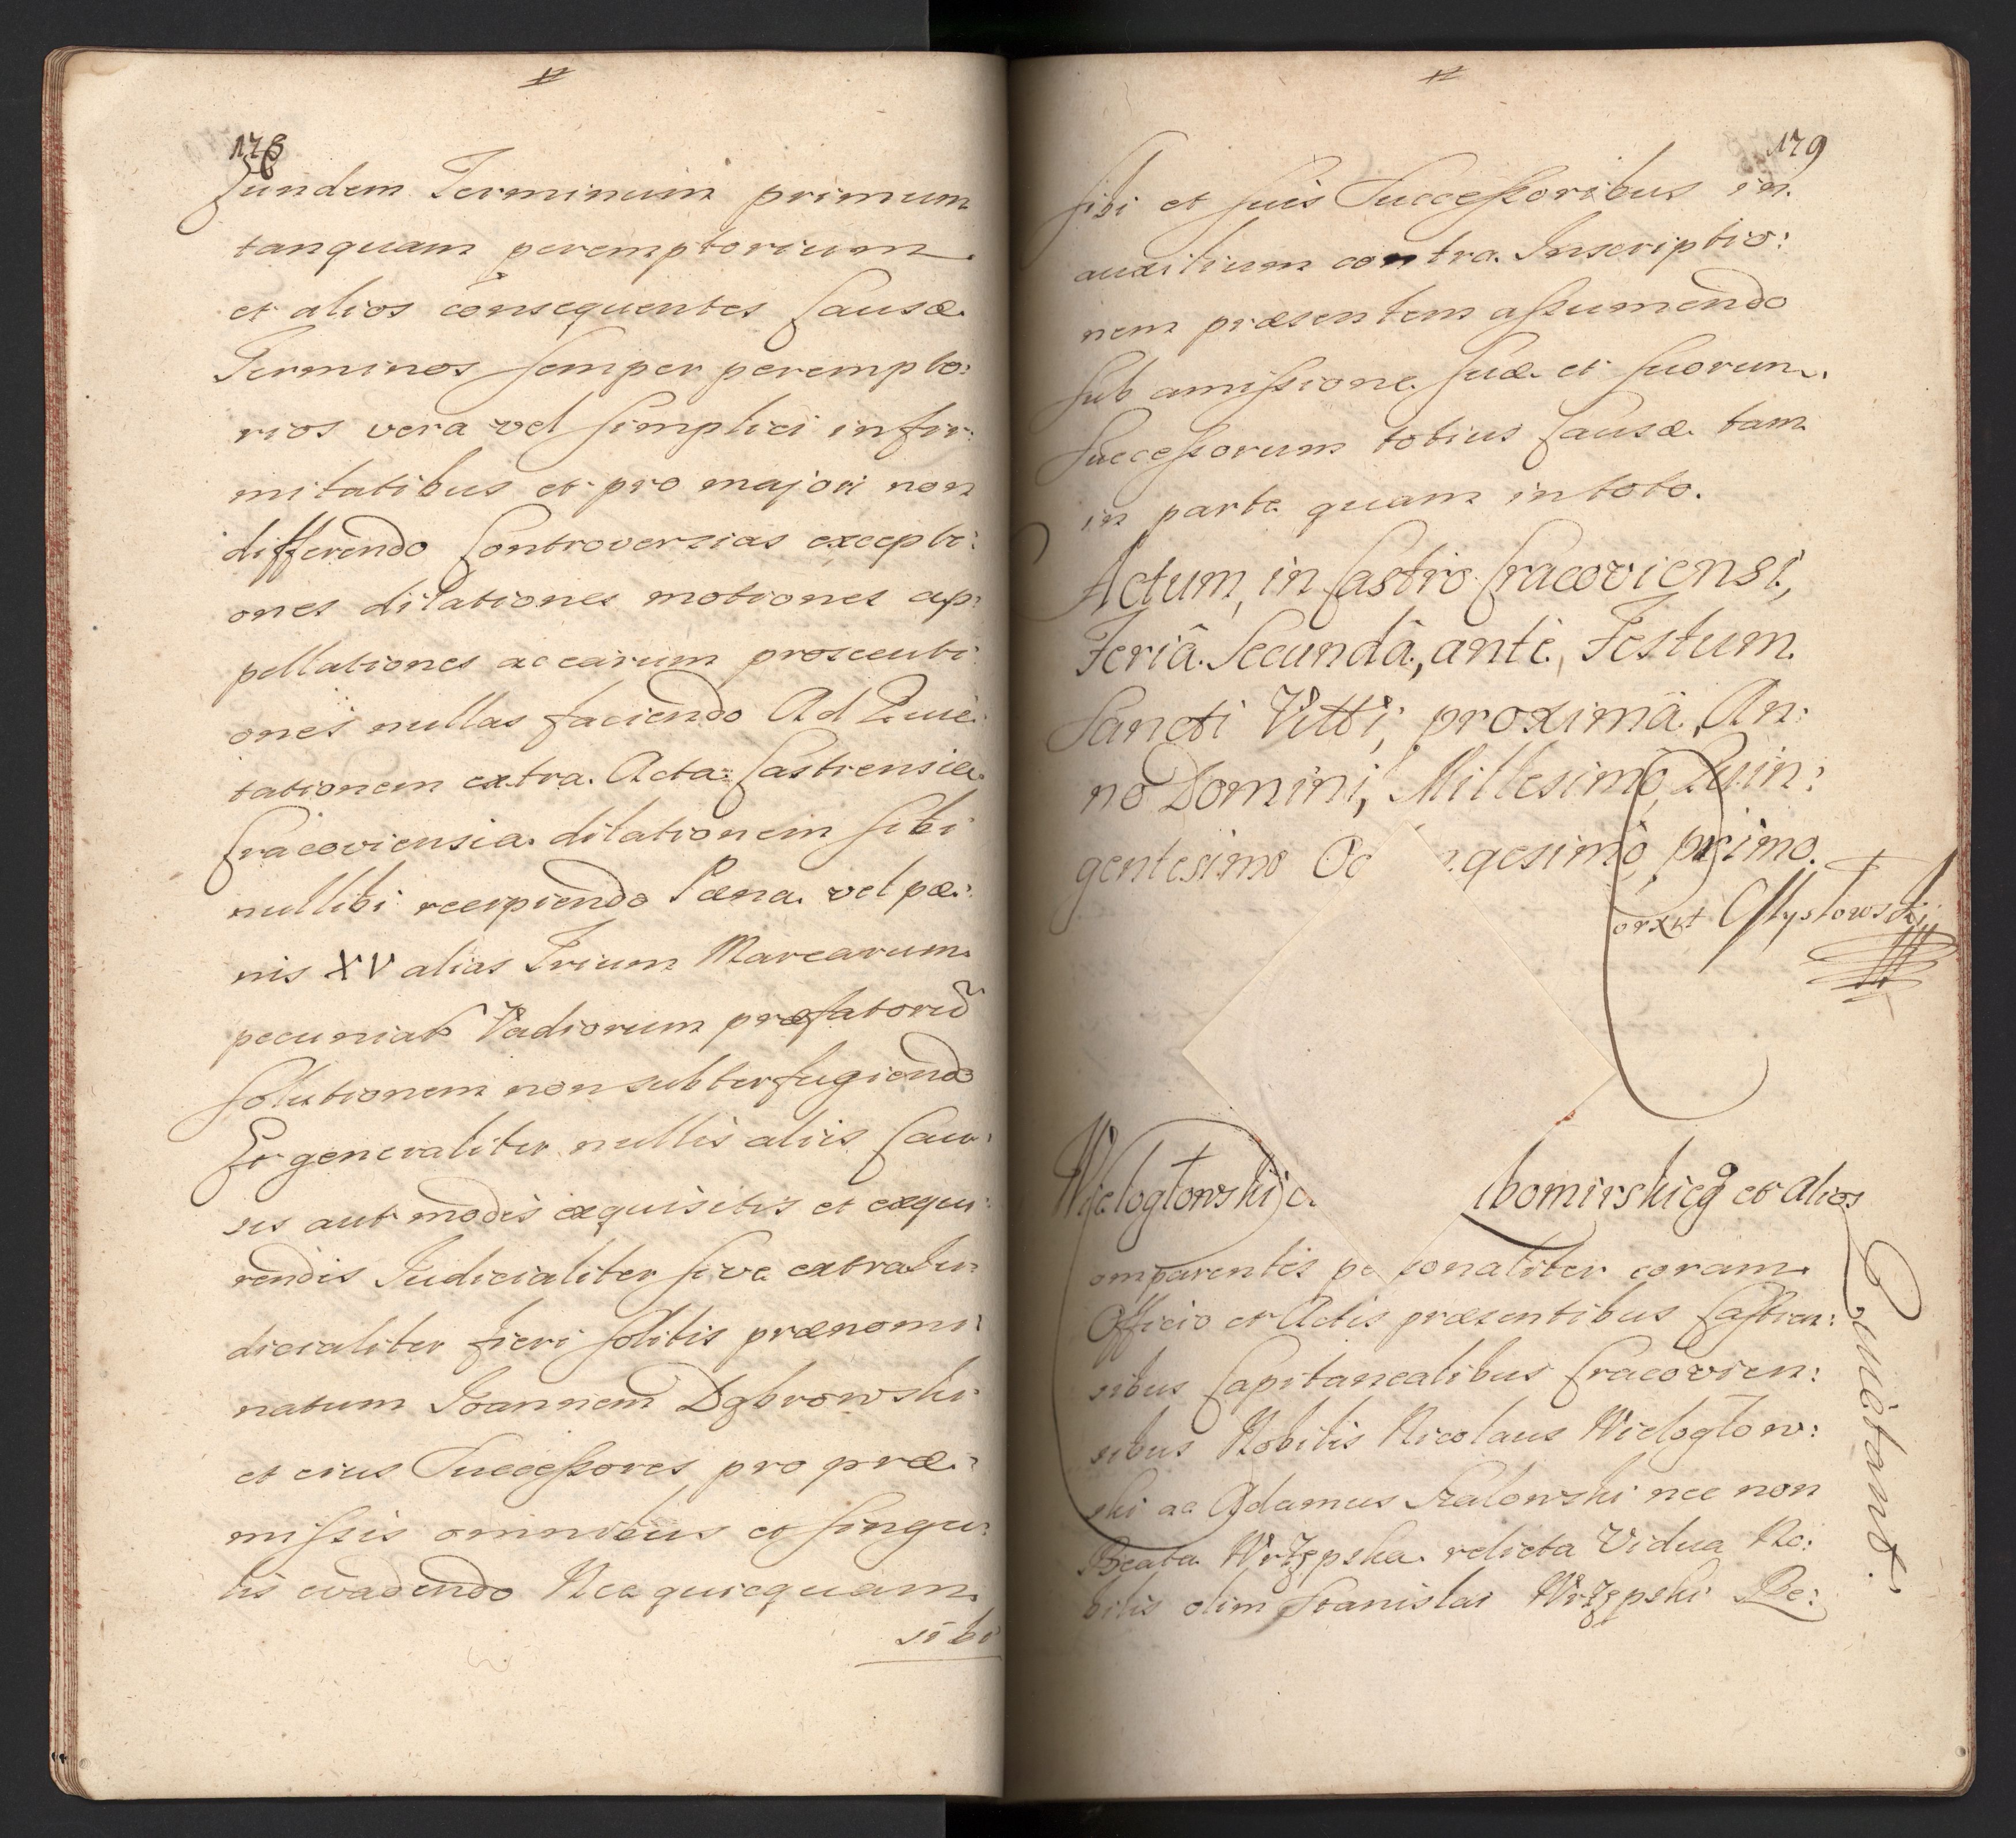 178
Eundem Terminum primum
tanquam peremptorium
et alios consequentes Causæ
Terminos semper perempto:
rios vera vel simplici infir:
mitatibus et pro majori non
differendo Controversias excepti:
ones dilationes motiones ap:
pellationes ac earum prosecuti:
ones nullas faciendo Ad Quie:
tationem extra Acta Castrensia
Cracoviensia dilationem sibi
nullibi recipiendo Pœna vel pæ:
nis XV alias Trium Marcarum
pecuniar Vadiorum præfatoru
solutionem non subterfugiendo
Et generaliter nullis aliis Cau:
sis aut modis exquisitis et exqui:
rendis Judicialiter sive extraJu:
dicialiter fieri solitis prænomi:
natum Joannem Dąbrowski
et eius Successores pro præ:
missis omnibus et singu:
lis evadendo Nec quicquam
sibi
179
sibi et suis Successoribus in
auxilium contra Inscriptio:
nem præsentem assumendo
sub amissione suæ et suorum
Successorum totius Causæ tam
in parte quam in toto.
Actum, in Castro Cracoviensi,
Feriâ Secundâ, antè, Festum
Sancti Vitti, proximâ, An:
no Domini, Millesimo, Quin:
gentesimo Oc gesimo, primo.
Correxit
Wielogłowski c. bomirskieg et alios
Quietant.
omparentes pe sonaliter coram
Officio et Actis præsentibus Castren:
sibus Capitanealibus Cracovien:
sibus Nobilis Nicolaus Wielogłow:
ski ac Adamus Szalowski nec non
Beata Wrzępska relicta Vidua No:
bilis olim Stanislai Wrzępski Be: